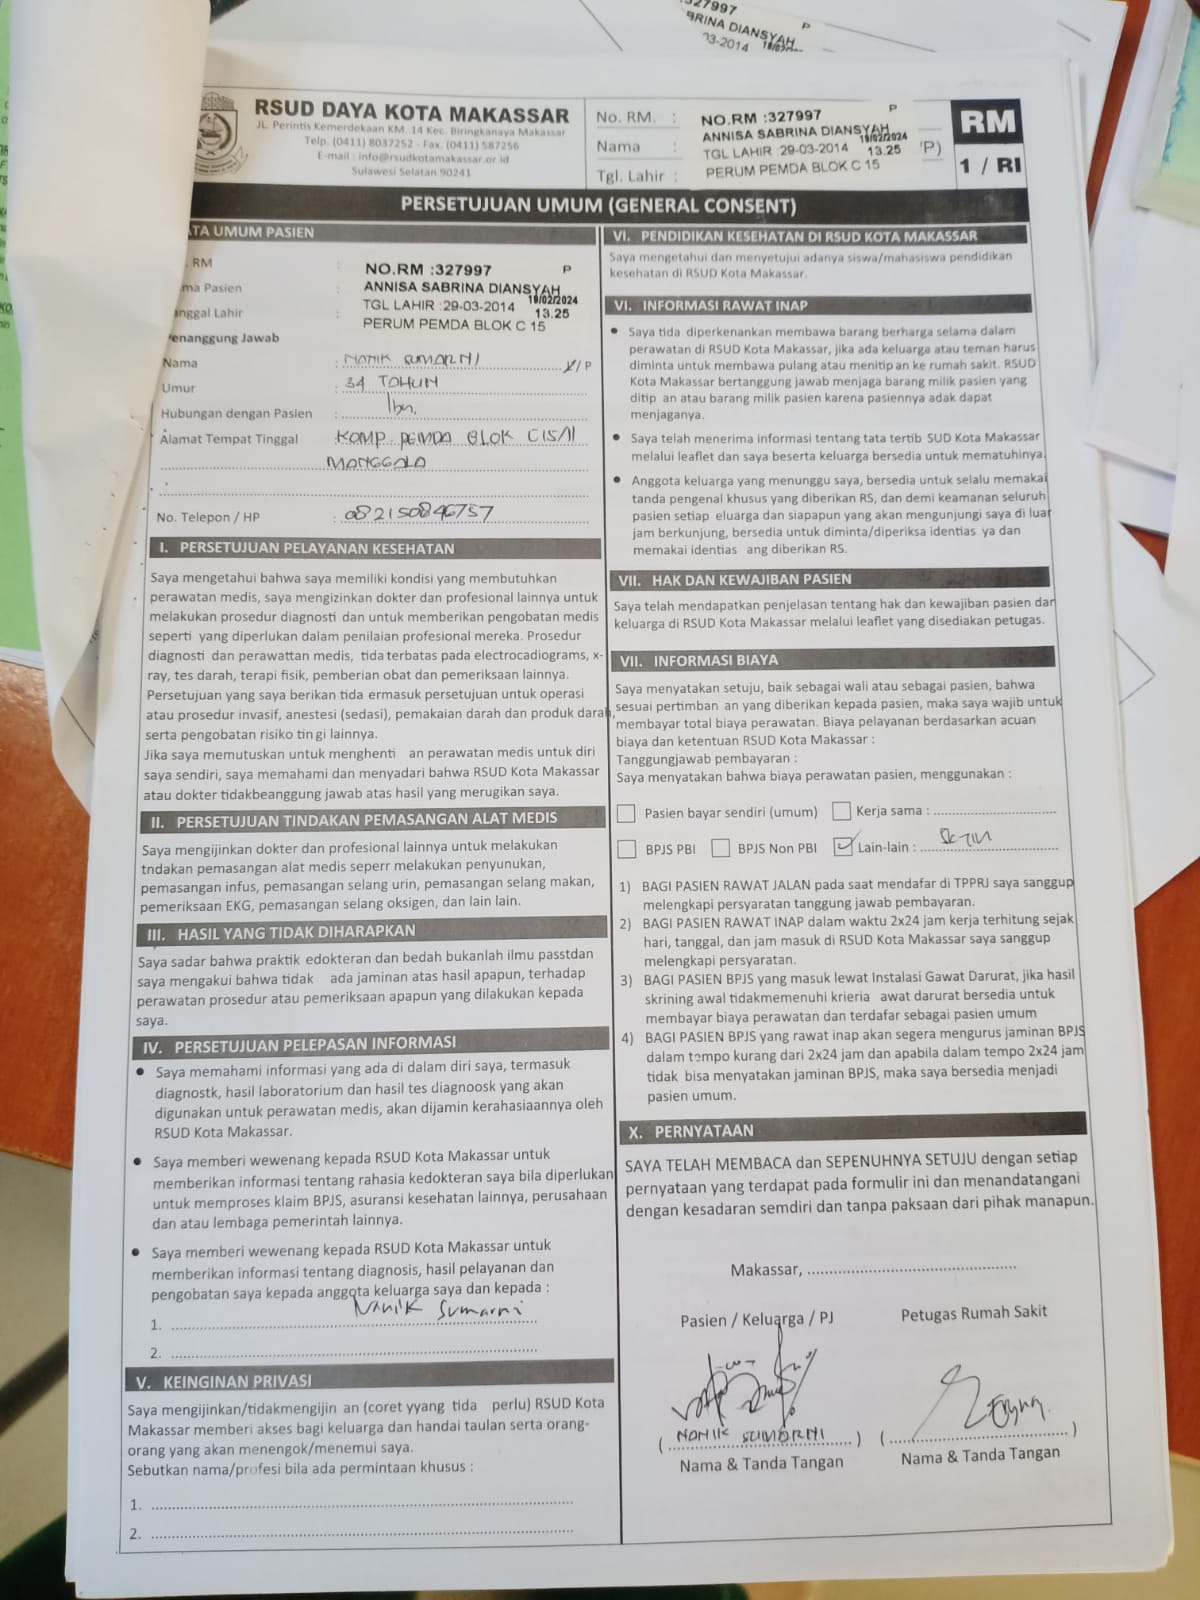 327997
P
BRINA DIANSYAH
03-2014
RSUD DAYA KOTA MAKASSAR
JL. Perintis Kemerdekaan KM. 14 Kec. Biringkanaya Makassar
Telp. (0411) 8037252 - Fax. (0411) 587256
E-mail : info@rsudkotamakassar.or.id
Sulawesi Selatan 90241
No. RM. :
Nama :
Tgl. Lahir :
NO.RM :327997 P
ANNISA SABRINA DIANSYAH
19/02/2024
TGL LAHIR :29-03-2014 13.25
PERUM PEMDA BLOK C 15
/P)
RM
1 / RI
PERSETUJUAN UMUM (GENERAL CONSENT)
TA UMUM PASIEN
. RM :
ma Pasien
anggal Lahir :
NO.RM :327997 P
ANNISA SABRINA DIANSYAH
19/02/2024
TGL LAHIR :29-03-2014 13.25
PERUM PEMDA BLOK C 15
Penanggung Jawab
Nama : NANIK SUMARNI L/P
Umur : 34 TAHUN
Hubungan dengan Pasien : Ibu
Alamat Tempat Tinggal : KOMP. PEMDA BLOK C15/11
MANGGALA
No. Telepon / HP : 082150846757
I. PERSETUJUAN PELAYANAN KESEHATAN
Saya mengetahui bahwa saya memiliki kondisi yang membutuhkan
perawatan medis, saya mengizinkan dokter dan profesional lainnya untuk
melakukan prosedur diagnosti dan untuk memberikan pengobatan medis
seperti yang diperlukan dalam penilaian profesional mereka. Prosedur
diagnosti dan perawattan medis, tida terbatas pada electrocadiograms, x-
ray, tes darah, terapi fisik, pemberian obat dan pemeriksaan lainnya.
Persetujuan yang saya berikan tida ermasuk persetujuan untuk operasi
atau prosedur invasif, anestesi (sedasi), pemakaian darah dan produk darah,
serta pengobatan risiko tin gi lainnya.
Jika saya memutuskan untuk menghenti an perawatan medis untuk diri
saya sendiri, saya memahami dan menyadari bahwa RSUD Kota Makassar
atau dokter tidakbeanggung jawab atas hasil yang merugikan saya.
II. PERSETUJUAN TINDAKAN PEMASANGAN ALAT MEDIS
Saya mengijinkan dokter dan profesional lainnya untuk melakukan
tndakan pemasangan alat medis seperr melakukan penyunukan,
pemasangan infus, pemasangan selang urin, pemasangan selang makan,
pemeriksaan EKG, pemasangan selang oksigen, dan lain lain.
III. HASIL YANG TIDAK DIHARAPKAN
Saya sadar bahwa praktik edokteran dan bedah bukanlah ilmu passtdan
saya mengakui bahwa tidak ada jaminan atas hasil apapun, terhadap
perawatan prosedur atau pemeriksaan apapun yang dilakukan kepada
saya.
IV. PERSETUJUAN PELEPASAN INFORMASI
• Saya memahami informasi yang ada di dalam diri saya, termasuk
diagnostk, hasil laboratorium dan hasil tes diagnoosk yang akan
digunakan untuk perawatan medis, akan dijamin kerahasiaannya oleh
RSUD Kota Makassar.
• Saya memberi wewenang kepada RSUD Kota Makassar untuk
memberikan informasi tentang rahasia kedokteran saya bila diperlukan
untuk memproses klaim BPJS, asuransi kesehatan lainnya, perusahaan
dan atau lembaga pemerintah lainnya.
• Saya memberi wewenang kepada RSUD Kota Makassar untuk
memberikan informasi tentang diagnosis, hasil pelayanan dan
pengobatan saya kepada anggota keluarga saya dan kepada :
1. Nanik Sumarni
2.
V. KEINGINAN PRIVASI
Saya mengijinkan/tidakmengijin an (coret yyang tida perlu) RSUD Kota
Makassar memberi akses bagi keluarga dan handai taulan serta orang-
orang yang akan menengok/menemui saya.
Sebutkan nama/profesi bila ada permintaan khusus :
1.
2.
VI. PENDIDIKAN KESEHATAN DI RSUD KOTA MAKASSAR
Saya mengetahui dan menyetujui adanya siswa/mahasiswa pendidikan
kesehatan di RSUD Kota Makassar.
VI. INFORMASI RAWAT INAP
• Saya tida diperkenankan membawa barang berharga selama dalam
perawatan di RSUD Kota Makassar, jika ada keluarga atau teman harus
diminta untuk membawa pulang atau menitip an ke rumah sakit. RSUD
Kota Makassar bertanggung jawab menjaga barang milik pasien yang
ditip an atau barang milik pasien karena pasiennya adak dapat
menjaganya.
• Saya telah menerima informasi tentang tata tertib SUD Kota Makassar
melalui leaflet dan saya beserta keluarga bersedia untuk mematuhinya.
• Anggota keluarga yang menunggu saya, bersedia untuk selalu memakai
tanda pengenal khusus yang diberikan RS, dan demi keamanan seluruh
pasien setiap eluarga dan siapapun yang akan mengunjungi saya di luar
jam berkunjung, bersedia untuk diminta/diperiksa identias ya dan
memakai identias ang diberikan RS.
VII. HAK DAN KEWAJIBAN PASIEN
Saya telah mendapatkan penjelasan tentang hak dan kewajiban pasien dan
keluarga di RSUD Kota Makassar melalui leaflet yang disediakan petugas.
VII. INFORMASI BIAYA
Saya menyatakan setuju, baik sebagai wali atau sebagai pasien, bahwa
sesuai pertimban an yang diberikan kepada pasien, maka saya wajib untuk
membayar total biaya perawatan. Biaya pelayanan berdasarkan acuan
biaya dan ketentuan RSUD Kota Makassar :
Tanggungjawab pembayaran :
Saya menyatakan bahwa biaya perawatan pasien, menggunakan :
Pasien bayar sendiri (umum) Kerja sama :
BPJS PBI BPJS Non PBI Lain-lain :
1) BAGI PASIEN RAWAT JALAN pada saat mendafar di TPPRJ saya sanggup
melengkapi persyaratan tanggung jawab pembayaran.
2) BAGI PASIEN RAWAT INAP dalam waktu 2x24 jam kerja terhitung sejak
hari, tanggal, dan jam masuk di RSUD Kota Makassar saya sanggup
melengkapi persyaratan.
3) BAGI PASIEN BPJS yang masuk lewat Instalasi Gawat Darurat, jika hasil
skrining awal tidakmemenuhi krieria awat darurat bersedia untuk
membayar biaya perawatan dan terdafar sebagai pasien umum
4) BAGI PASIEN BPJS yang rawat inap akan segera mengurus jaminan BPJS
dalam tempo kurang dari 2x24 jam dan apabila dalam tempo 2x24 jam
tidak bisa menyatakan jaminan BPJS, maka saya bersedia menjadi
pasien umum.
X. PERNYATAAN
SAYA TELAH MEMBACA dan SEPENUHNYA SETUJU dengan setiap
pernyataan yang terdapat pada formulir ini dan menandatangani
dengan kesadaran semdiri dan tanpa paksaan dari pihak manapun.
Makassar,
Pasien / Keluarga / PJ Petugas Rumah Sakit
( NANIK SUMARNI ) ( )
Nama & Tanda Tangan Nama & Tanda Tangan